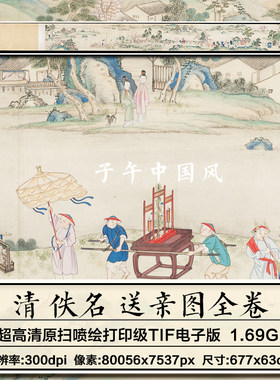 子午中国风
清 佚名 送亲图全卷
超高清原扫喷绘打印级TIF电子版 1.69G
辨率:300dpi 像素:80056x7537px 尺寸:677x63c